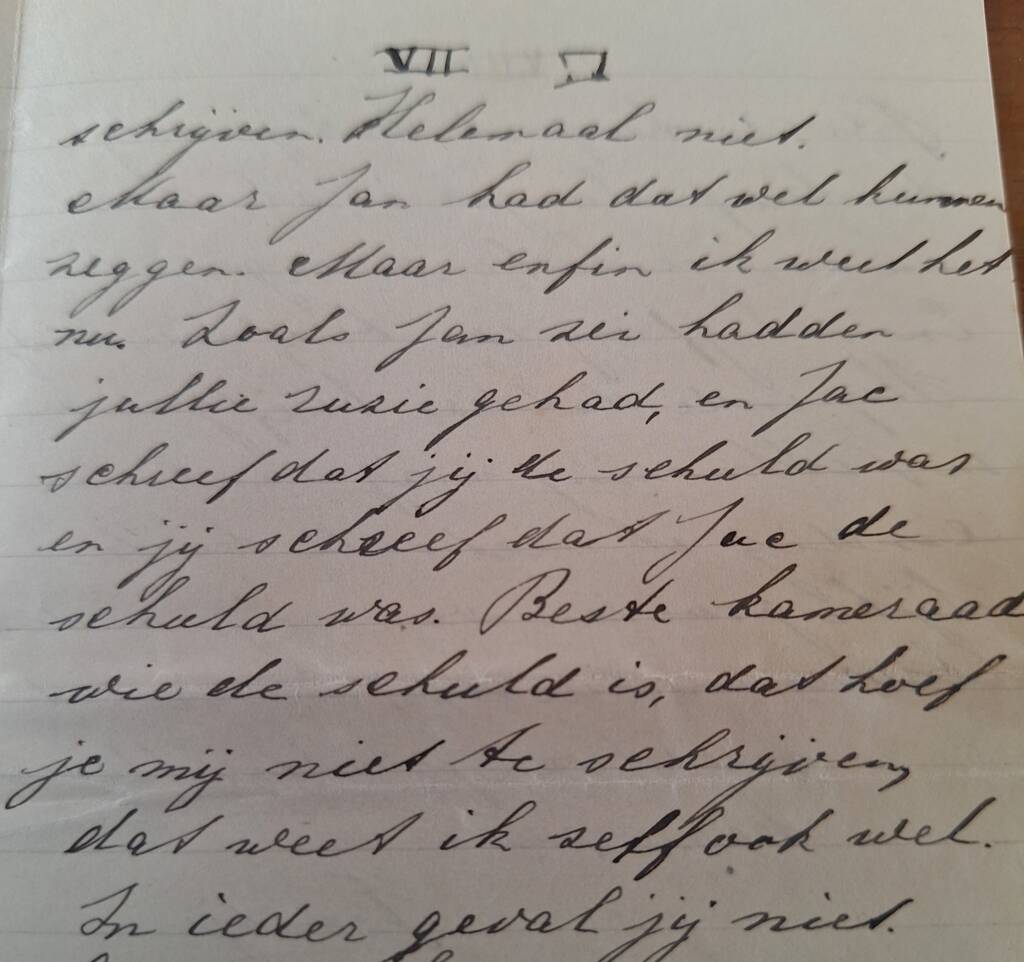 VII VI
schrijven. Helemaal niet.
Maar Jan had dat wel kunnen
zeggen. Maar enfin ik weet het
nu. Zoals Jan zei hadden
jullie ruzie gehad, en Jac
schreef dat jij de schuld was
en jij schreef dat Jac de
schuld was. Beste kameraad
wie de schuld is, dat hoef
je mij niet te schrijven,
dat weet ik zelf ook wel.
In ieder geval jij niet.